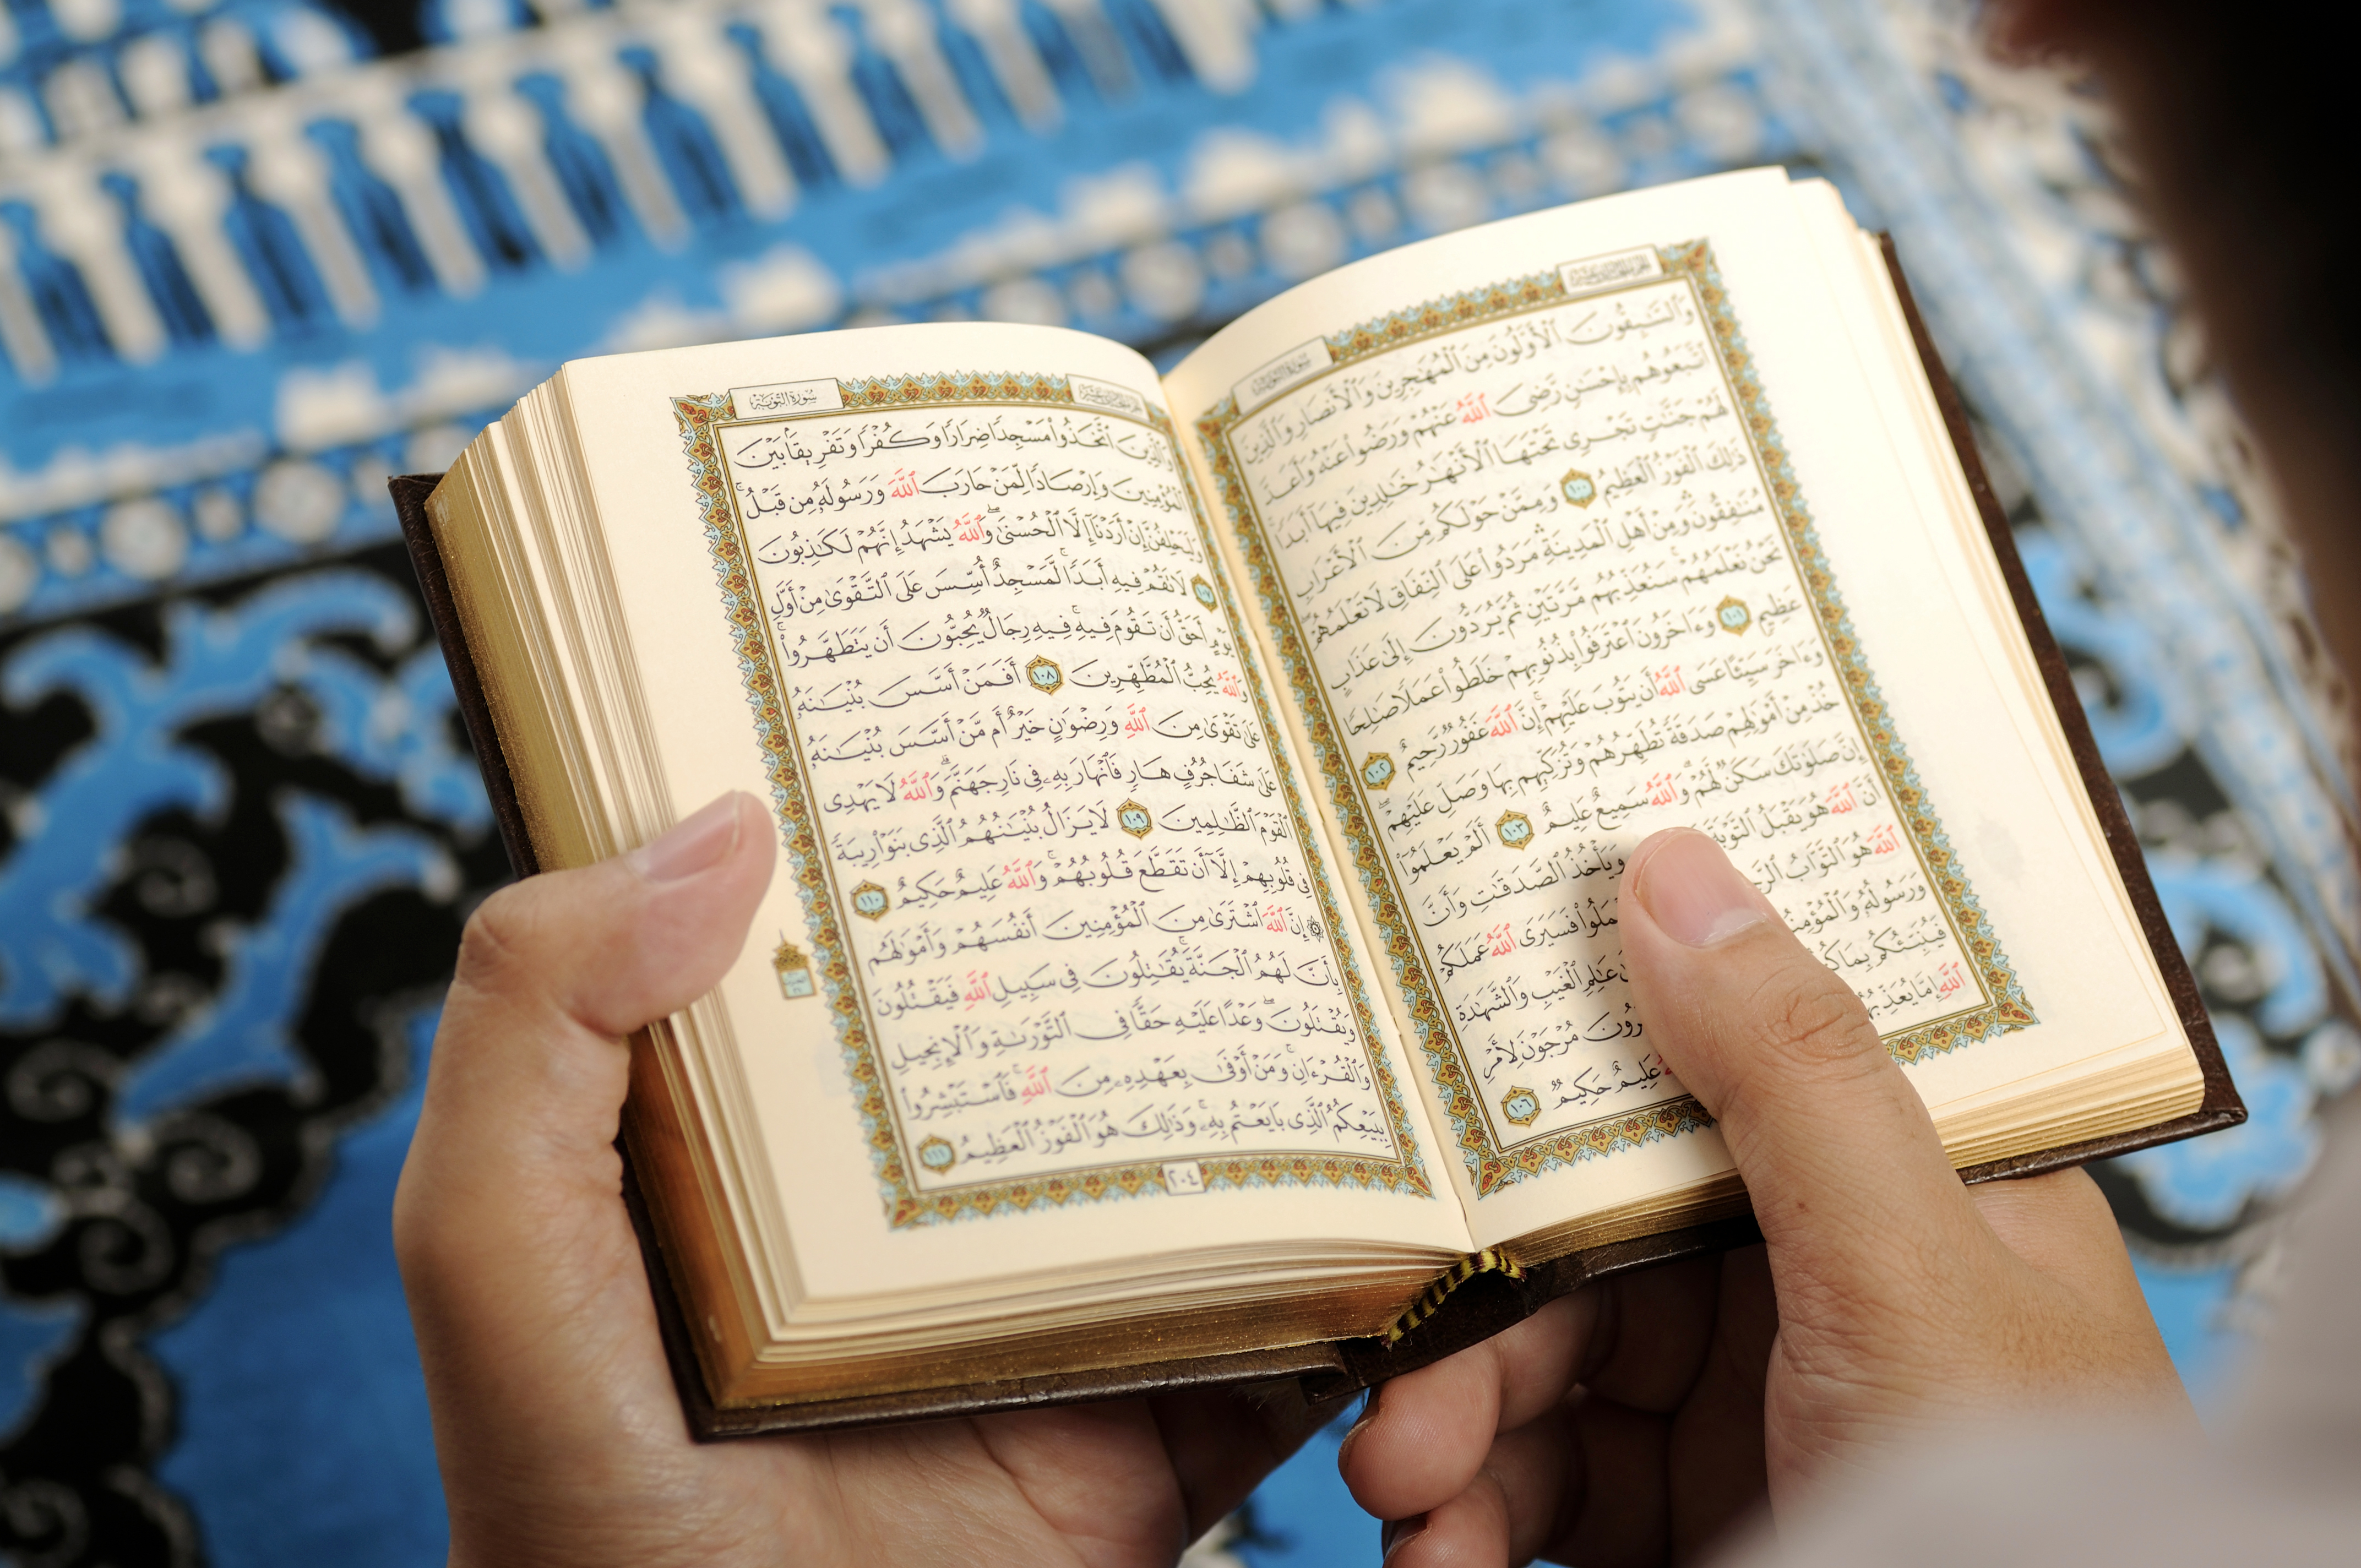 سورة التوبة
وَٱلسَّٰبِقُونَ ٱلْأَوَّلُونَ مِنَ ٱلْمُهَٰجِرِينَ وَٱلْأَنصَارِ وَٱلَّذِينَ
ٱتَّبَعُوهُم بِإِحْسَٰنٍ رَّضِىَ ٱللَّهُ عَنْهُمْ وَرَضُوا۟ عَنْهُ وَأَعَدَّ
لَهُمْ جَنَّٰتٍ تَجْرِى تَحْتَهَا ٱلْأَنْهَٰرُ خَٰلِدِينَ فِيهَآ أَبَدًا
ذَٰلِكَ ٱلْفَوْزُ ٱلْعَظِيمُ ١٠٠ وَمِمَّنْ حَوْلَكُم مِّنَ ٱلْأَعْرَابِ
مُنَٰفِقُونَ وَمِنْ أَهْلِ ٱلْمَدِينَةِ مَرَدُوا۟ عَلَى ٱلنِّفَاقِ لَا تَعْلَمُهُمْ
نَحْنُ نَعْلَمُهُمْ سَنُعَذِّبُهُم مَّرَّتَيْنِ ثُمَّ يُرَدُّونَ إِلَىٰ عَذَابٍ
عَظِيمٍ ١٠١ وَءَاخَرُونَ ٱعْتَرَفُوا۟ بِذُنُوبِهِمْ خَلَطُوا۟ عَمَلًا صَٰلِحًا
وَءَاخَرَ سَيِّئًا عَسَى ٱللَّهُ أَن يَتُوبَ عَلَيْهِمْ إِنَّ ٱللَّهَ غَفُورٌ رَّحِيمٌ ١٠٢
خُذْ مِنْ أَمْوَٰلِهِمْ صَدَقَةً تُطَهِّرُهُمْ وَتُزَكِّيهِم بِهَا وَصَلِّ عَلَيْهِمْ
إِنَّ صَلَوٰتَكَ سَكَنٌ لَّهُمْ وَٱللَّهُ سَمِيعٌ عَلِيمٌ ١٠٣ أَلَمْ يَعْلَمُوٓا۟
أَنَّ ٱللَّهَ هُوَ يَقْبَلُ ٱلتَّوْبَةَ وَيَأْخُذُ ٱلصَّدَقَٰتِ وَأَنَّ
ٱللَّهَ هُوَ ٱلتَّوَّابُ فَسَيَرَى ٱللَّهُ عَمَلَكُمْ
وَرَسُولُهُۥ عَٰلِمِ ٱلْغَيْبِ وَٱلشَّهَٰدَةِ
فَيُنَبِّئُكُم بِمَا مُرْجَوْنَ لِأَمْرِ
ٱللَّهِ إِمَّا عَلِيمٌ حَكِيمٌ ١٠٦
سورة التوبة
وَٱلَّذِينَ ٱتَّخَذُوا۟ مَسْجِدًا ضِرَارًا وَكُفْرًا وَتَفْرِيقًۢا بَيْنَ
ٱلْمُؤْمِنِينَ وَإِرْصَادًا لِّمَنْ حَارَبَ ٱللَّهَ وَرَسُولَهُۥ مِن قَبْلُ
وَلَيَحْلِفُنَّ إِنْ أَرَدْنَآ إِلَّا ٱلْحُسْنَىٰ وَٱللَّهُ يَشْهَدُ إِنَّهُمْ لَكَٰذِبُونَ
١٠٧ لَا تَقُمْ فِيهِ أَبَدًا لَّمَسْجِدٌ أُسِّسَ عَلَى ٱلتَّقْوَىٰ مِنْ أَوَّلِ
يَوْمٍ أَحَقُّ أَن تَقُومَ فِيهِ فِيهِ رِجَالٌ يُحِبُّونَ أَن يَتَطَهَّرُوا۟
وَٱللَّهُ يُحِبُّ ٱلْمُطَّهِّرِينَ ١٠٨ أَفَمَنْ أَسَّسَ بُنْيَٰنَهُۥ
عَلَىٰ تَقْوَىٰ مِنَ ٱللَّهِ وَرِضْوَٰنٍ خَيْرٌ أَم مَّنْ أَسَّسَ بُنْيَٰنَهُۥ
عَلَىٰ شَفَا جُرُفٍ هَارٍ فَٱنْهَارَ بِهِۦ فِى نَارِ جَهَنَّمَ وَٱللَّهُ لَا يَهْدِى
ٱلْقَوْمَ ٱلظَّٰلِمِينَ ١٠٩ لَا يَزَالُ بُنْيَٰنُهُمُ ٱلَّذِى بَنَوْا۟ رِيبَةً
فِى قُلُوبِهِمْ إِلَّآ أَن تَقَطَّعَ قُلُوبُهُمْ وَٱللَّهُ عَلِيمٌ حَكِيمٌ ١١٠
۞ إِنَّ ٱللَّهَ ٱشْتَرَىٰ مِنَ ٱلْمُؤْمِنِينَ أَنفُسَهُمْ وَأَمْوَٰلَهُم
بِأَنَّ لَهُمُ ٱلْجَنَّةَ يُقَٰتِلُونَ فِى سَبِيلِ ٱللَّهِ فَيَقْتُلُونَ
وَيُقْتَلُونَ وَعْدًا عَلَيْهِ حَقًّا فِى ٱلتَّوْرَىٰةِ وَٱلْإِنجِيلِ
وَٱلْقُرْءَانِ وَمَنْ أَوْفَىٰ بِعَهْدِهِۦ مِنَ ٱللَّهِ فَٱسْتَبْشِرُوا۟
بِبَيْعِكُمُ ٱلَّذِى بَايَعْتُم بِهِۦ وَذَٰلِكَ هُوَ ٱلْفَوْزُ ٱلْعَظِيمُ ١١١
٢٠٤